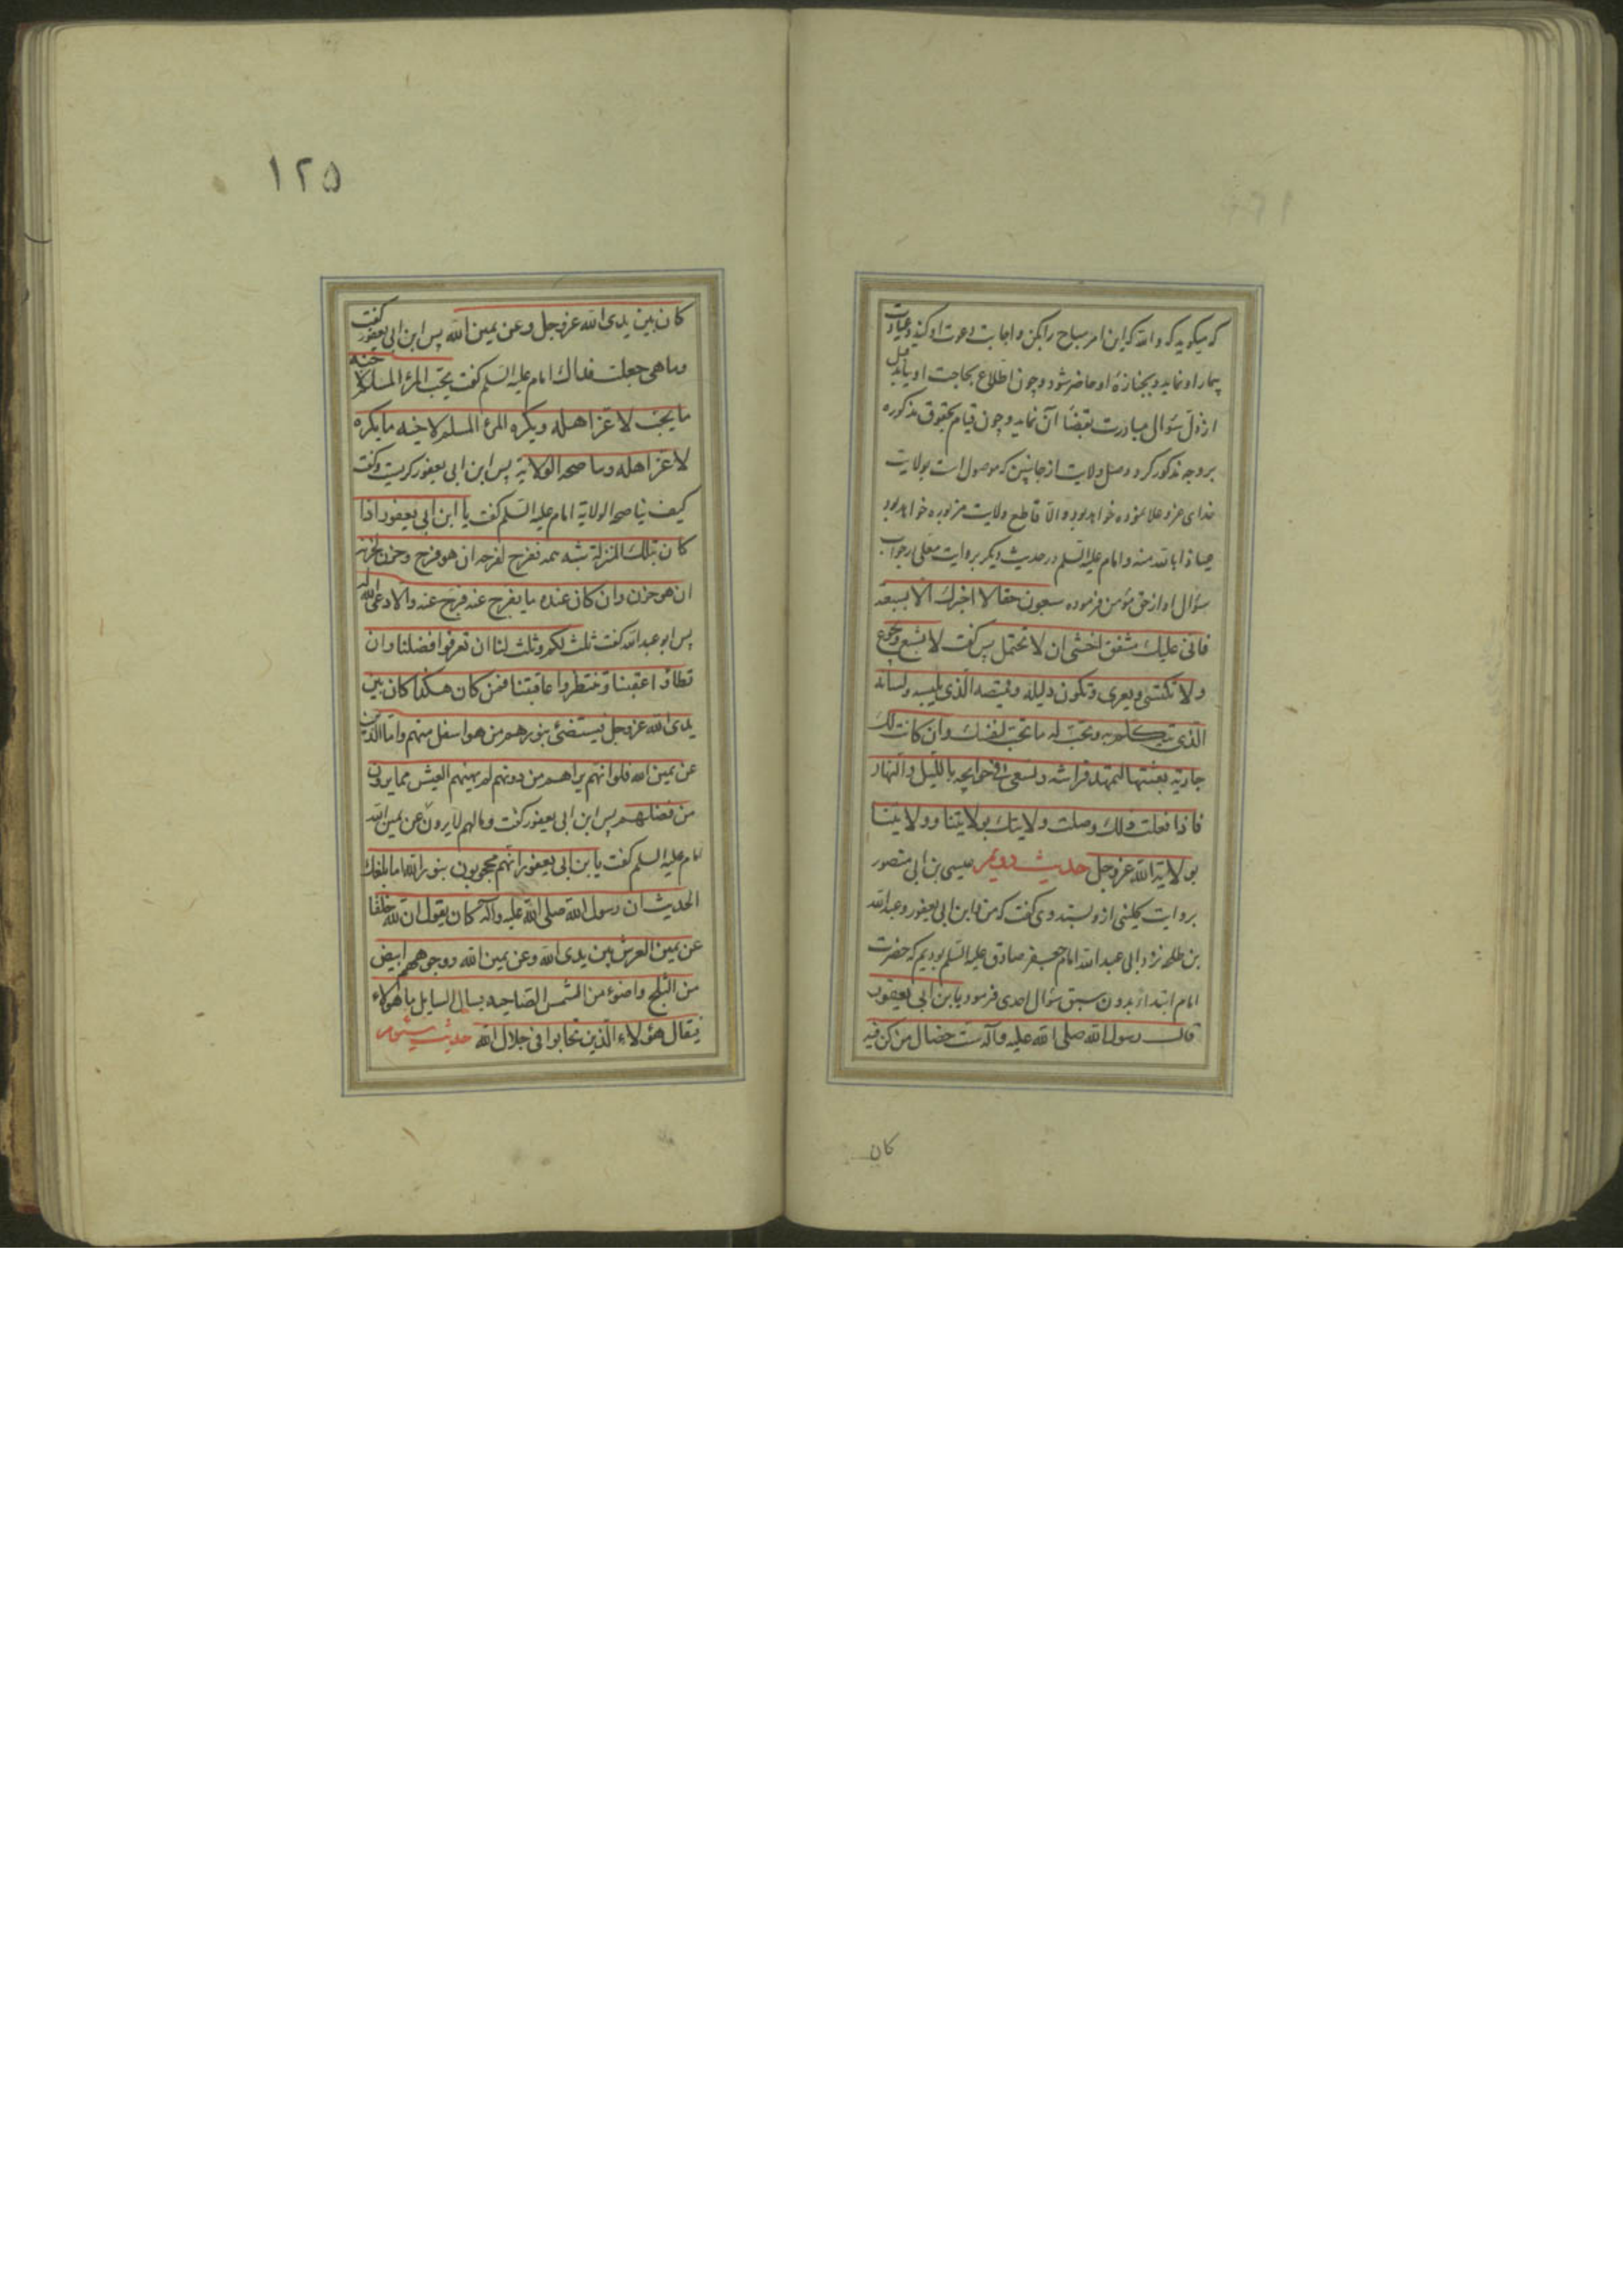 که میگوید که والله که این امر مباح را بکن و اجابت دعوت او کند و عیادت
بیمار او نماید و بجنازهٔ او حاضر شود و چون اطلاع بحاجت او یابد قبل
از ذل سؤال مبادرت بقضاء آن نماید و چون قیام بحقوق مذکوره
بر وجه مذکور کرد وصل ولایت از جانبین که موصول است بولایت
خدای عز و علا نموده خواهد بود و الا قاطع ولایت مزبوره خواهد بود
عیاذا بالله منه و امام علیه السلم در حدیث دیگر بروایت معلی در جواب
سؤال او از حق مؤمن فرموده سبعون حقا لا اخبرک الا بسبعة
فانی علیک مشفق اخشی ان لا تحتمل پس گفت لا تشبع و یجوع
و لا تکتسی و یعری و تکون دلیله و قمیصه الذی یلبسه و لسانه
الذی یتکلم به و تحب له ما تحب لنفسک و ان کانت لک
جاریة بعثتها لتمهد فراشه و تسعی فی حوایجه باللیل و النهار
فاذا فعلت ذلک وصلت ولایتک بولایتنا و ولایتنا
بولایة الله عز و جل حدیث دویم عیسی بن ابی منصور
بروایت کلینی ازو بسند وی گفت که من و ابن ابی یعفور و عبدالله
بن طلحه نزد ابی عبدالله امام جعفر صادق علیه السلم بودیم که حضرت
امام ابتدا از بدون سبق سؤال احدی فرمود یا بن ابی یعفور
قال رسول الله صلی الله علیه و آله ست خصال من کن فیه
کان
١٢۵
کان بین یدی الله عز و جل و عن یمین الله پس ابن ابی یعفور گفت
و ما هی جعلت فداک امام علیه السلم گفت یحب المرء المسلم لاخیه
ما یحب لاعز اهله و یکره المرء المسلم لاخیه ما یکره
لاعز اهله و یناصحه الولایة پس ابن ابی یعفور گریست و گفت
کیف یناصحه الولایة امام علیه السلم گفت یا ابن ابی یعفور اذا
کان بتلک المنزلة بثه همه ففرح لفرحه ان هو فرح و حزن لحزنه
ان هو حزن و ان کان عنده ما یفرج عنه فرج عنه و الا دعی الله له
پس ابو عبدالله گفت ثلث لکم و ثلث لنا ان تعرفوا فضلنا و ان
تطاؤا عقبنا و تنتظروا عاقبتنا فمن کان هکذا کان بین
یدی الله عز و جل فیستضئ بنورهم من هو اسفل منهم و اما الذین
عن یمین الله فلو انهم یراهم من دونهم لم یهنهم العیش مما یرون
من فضلهم پس ابن ابی یعفور گفت و ما لهم لا یرون عن یمین الله
امام علیه السلم گفت یا بن ابی یعفور انهم محجوبون بنور الله اما بلغک
الحدیث ان رسول الله صلی الله علیه و آله کان یقول ان لله خلقا
عن یمین العرش بین یدی الله و عن یمین الله وجوههم ابیض
من الثلج و اضوء من الشمس الضاحیه یسال السایل ما هؤلاء
فیقال هؤلاء الذین تحابوا فی جلال الله حدیث سیم